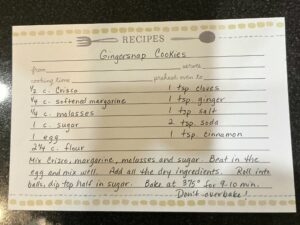 RECIPES
Gingersnap Cookies
from serves
cooking time preheat oven to
1/2 c. Crisco 1 tsp. cloves
1/4 c. softened margarine 1 tsp. ginger
1/4 c. molasses 1 tsp. salt
1 c. sugar 2 tsp. soda
1 egg 1 tsp. cinnamon
2 1/4 c. flour
Mix Crisco, margarine, molasses and sugar. Beat in the
egg and mix well. Add all the dry ingredients. Roll into
balls, dip top half in sugar. Bake at 375° for 9-10 min.
Don't overbake!